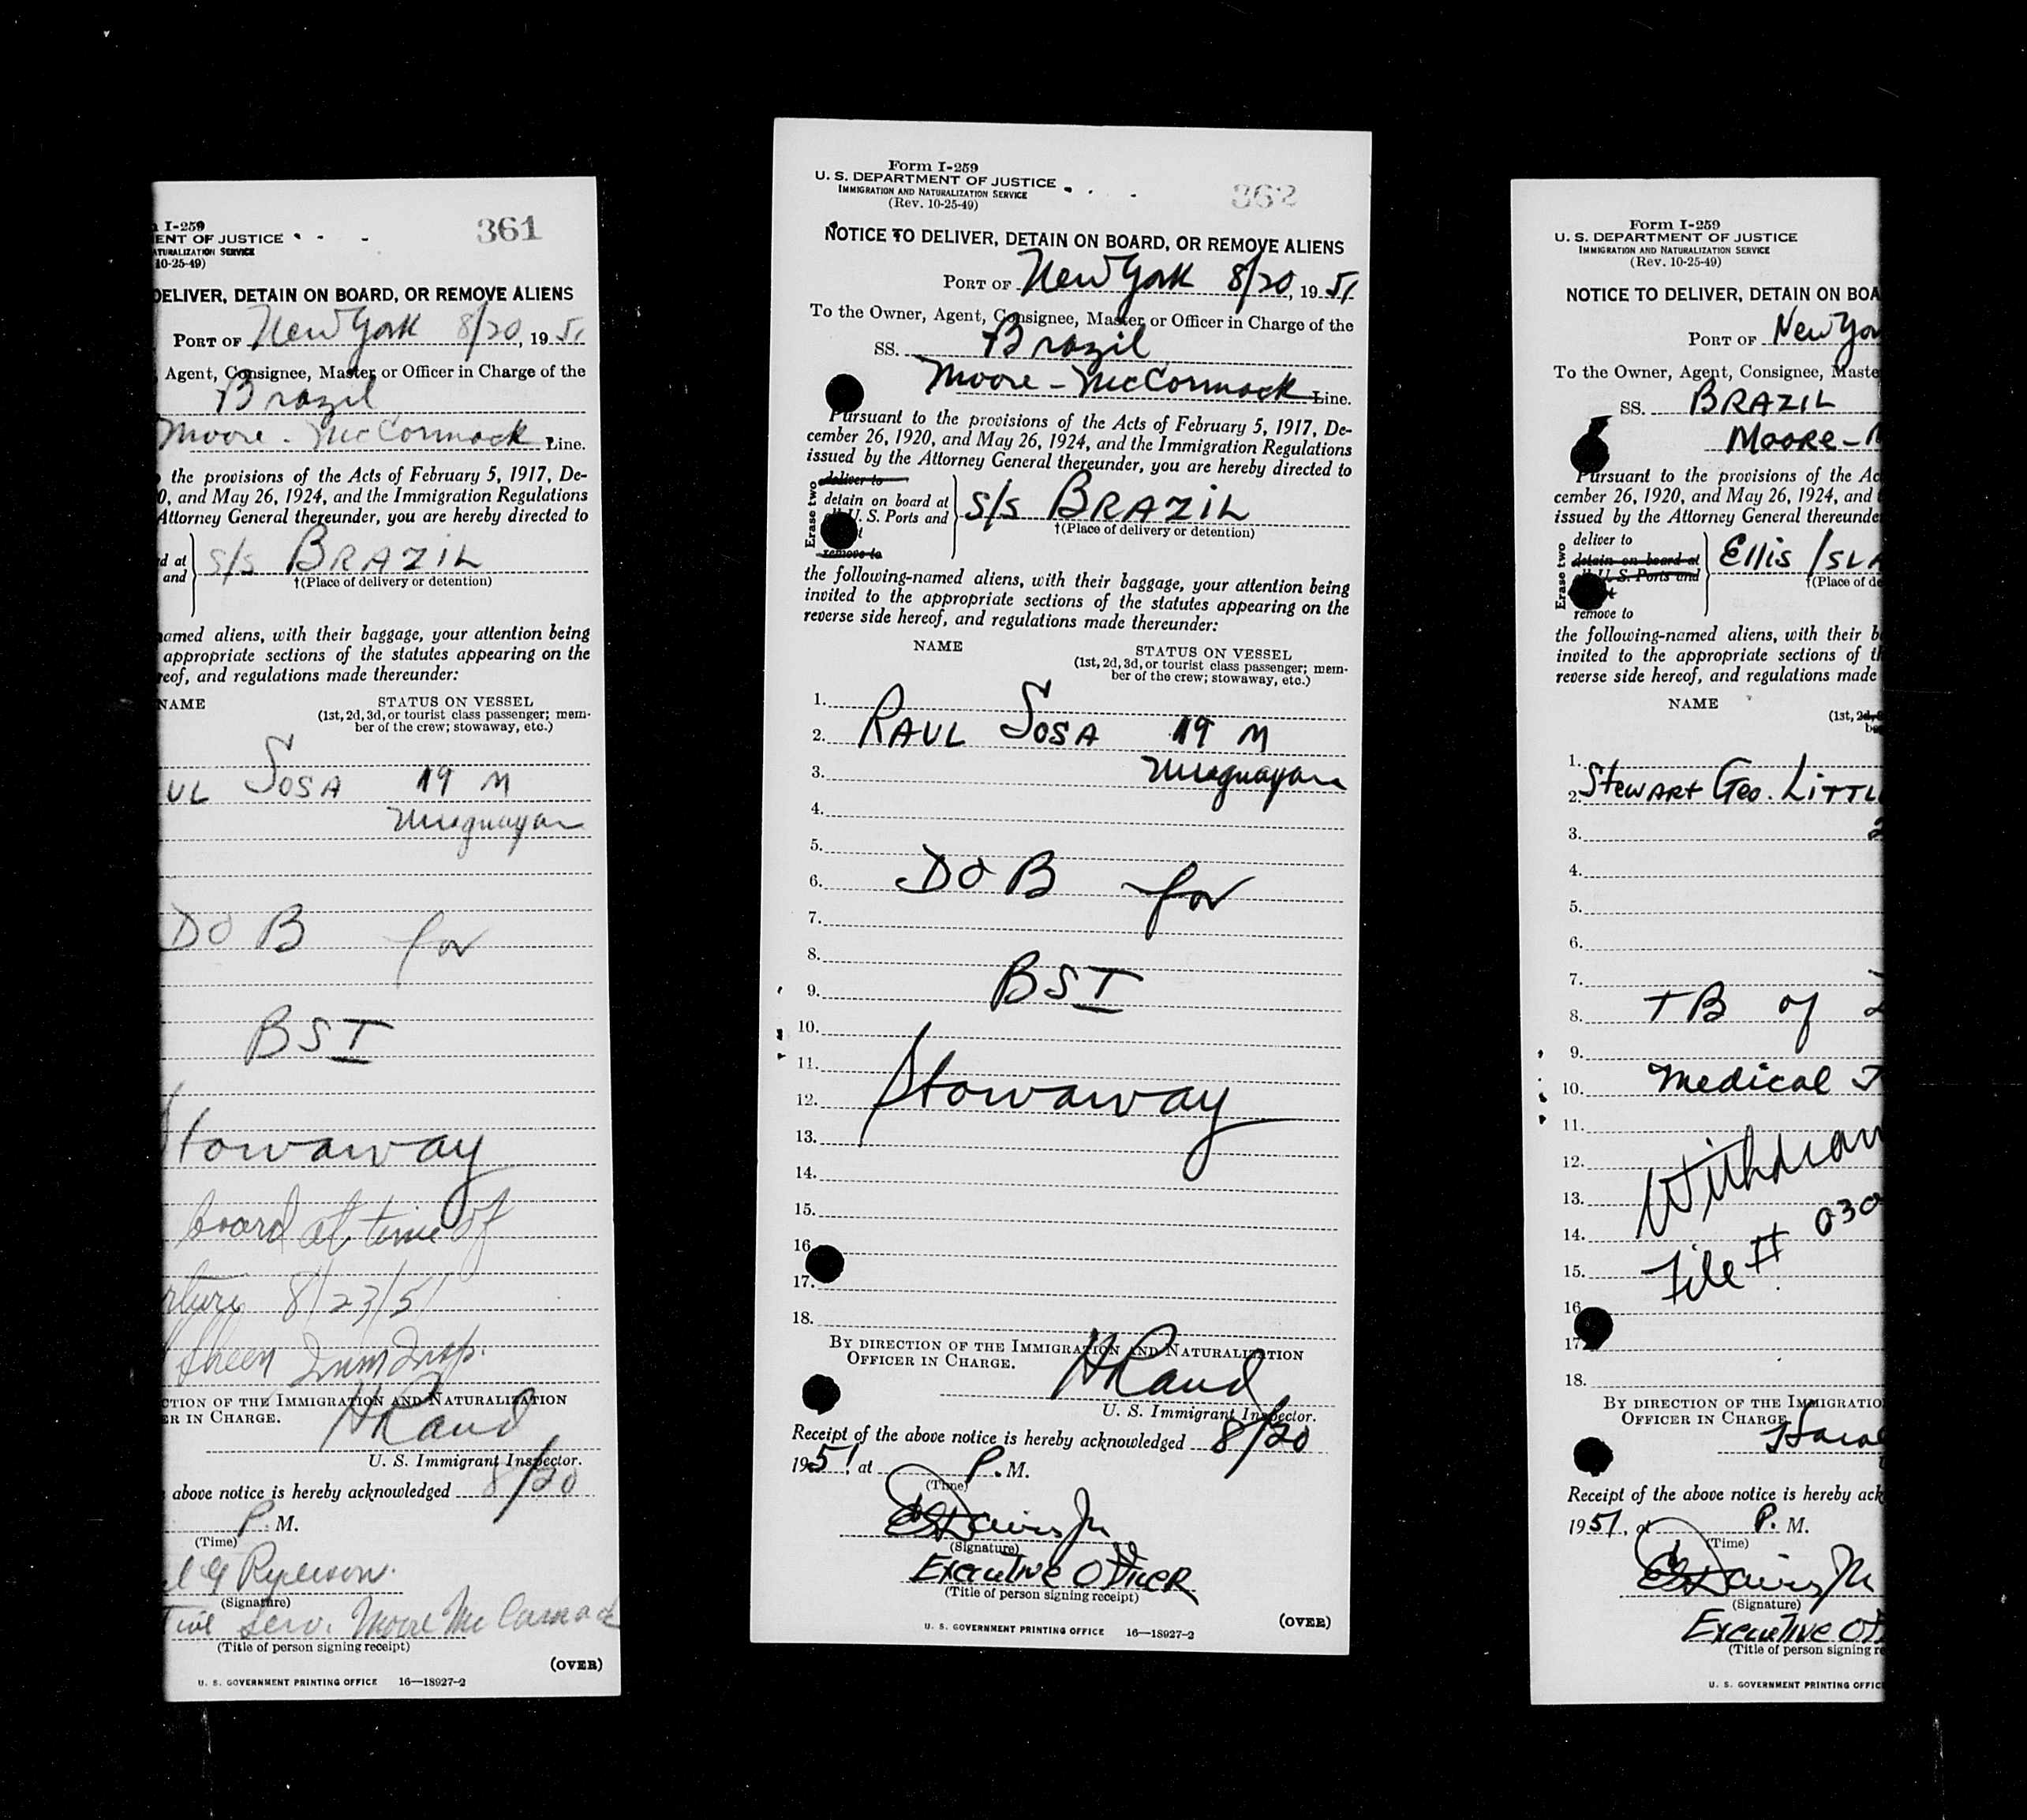 I-259
ENT OF JUSTICE
ATURALIZATION SERVICE
10-25-49)
361
DELIVER, DETAIN ON BOARD, OR REMOVE ALIENS
PORT OF New York 8/20, 1951
Agent, Consignee, Master or Officer in Charge of the
Brazil
Moore - McCormack Line.
the provisions of the Acts of February 5, 1917, De-
0, and May 26, 1924, and the Immigration Regulations
Attorney General thereunder, you are hereby directed to
d at
and
S/S BRAZIL
†(Place of delivery or detention)
amed aliens, with their baggage, your attention being
appropriate sections of the statutes appearing on the
reof, and regulations made thereunder:
NAME STATUS ON VESSEL
(1st, 2d, 3d, or tourist class passenger; mem-
ber of the crew; stowaway, etc.)
UL SOSA 19 M
Uruguayan
DOB for
BSI
towaway
board at time of
rture 8/23/51
Imm Insp.
CTION OF THE IMMIGRATION AND NATURALIZATION
ER IN CHARGE.
H Rand
U. S. Immigrant Inspector.
above notice is hereby acknowledged 8/20
P. M.
(Time)
l G Ryerson.
(Signature)
Serv. Moore McCormack
(Title of person signing receipt)
(OVER)
U. S. GOVERNMENT PRINTING OFFICE 16—18927-2
Form I-259
U. S. DEPARTMENT OF JUSTICE
IMMIGRATION AND NATURALIZATION SERVICE
(Rev. 10-25-49)
362
NOTICE TO DELIVER, DETAIN ON BOARD, OR REMOVE ALIENS
PORT OF New York 8/20, 1951
To the Owner, Agent, Consignee, Master or Officer in Charge of the
SS. Brazil
Moore - McCormack Line.
Pursuant to the provisions of the Acts of February 5, 1917, De-
cember 26, 1920, and May 26, 1924, and the Immigration Regulations
issued by the Attorney General thereunder, you are hereby directed to
Erase two
deliver to
detain on board at
U. S. Ports and
remove to
S/S BRAZIL
†(Place of delivery or detention)
the following-named aliens, with their baggage, your attention being
invited to the appropriate sections of the statutes appearing on the
reverse side hereof, and regulations made thereunder:
NAME STATUS ON VESSEL
(1st, 2d, 3d, or tourist class passenger; mem-
ber of the crew; stowaway, etc.)
1.
2. RAUL SOSA 19 M
3. Uruguayan
4.
5.
6. DOB for
7.
8.
9. BSI
10.
11.
12. Stowaway
13.
14.
15.
16.
17.
18.
BY DIRECTION OF THE IMMIGRATION AND NATURALIZATION
OFFICER IN CHARGE.
H Rand
U. S. Immigrant Inspector.
Receipt of the above notice is hereby acknowledged 8/20
1951, at P. M.
(Time)
Davis Jr
(Signature)
EXECUTIVE OFFICER
(Title of person signing receipt)
(OVER)
U. S. GOVERNMENT PRINTING OFFICE 16—18927-2
Form I-259
U. S. DEPARTMENT OF JUSTICE
IMMIGRATION AND NATURALIZATION SERVICE
(Rev. 10-25-49)
NOTICE TO DELIVER, DETAIN ON BOA
PORT OF New Yor
To the Owner, Agent, Consignee, Maste
SS. BRAZIL
MOORE - M
Pursuant to the provisions of the Ac
cember 26, 1920, and May 26, 1924, and
issued by the Attorney General thereunde
Erase two
deliver to
detain on board at
U. S. Ports and
remove to
Ellis ISLA
†(Place of de
the following-named aliens, with their b
invited to the appropriate sections of th
reverse side hereof, and regulations made
NAME
(1st, 2d,
be
1.
2. STEWART GEO. LITTL
3. 2
4.
5.
6.
7.
8. TB of
9.
10. Medical
11.
12. Withdraw
13.
14. File # 030
15.
16.
17.
18.
BY DIRECTION OF THE IMMIGRATIO
OFFICER IN CHARGE.
Haro
Receipt of the above notice is hereby ack
1951, at P. M.
(Time)
Davis Jr
(Signature)
EXECUTIVE OFF
(Title of person signing re
U. S. GOVERNMENT PRINTING OFFIC